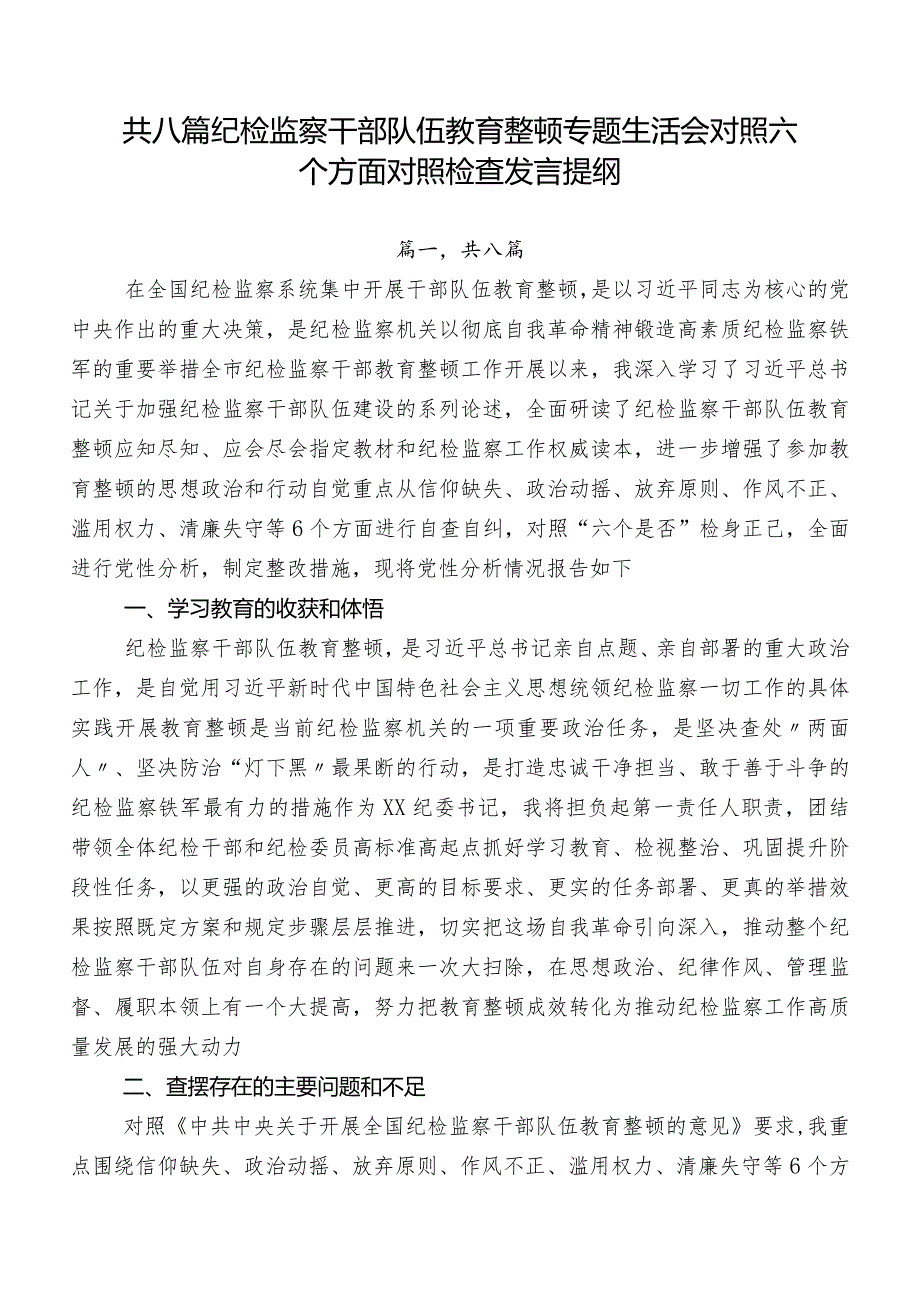 共八篇纪检监察干部队伍教育整顿专题生活会对照六
个方面对照检查发言提纲
篇一，共八篇
在全国纪检监察系统集中开展干部队伍教育整顿，是以习近平同志为核心的党
中央作出的重大决策，是纪检监察机关以彻底自我革命精神锻造高素质纪检监察铁
军的重要举措全市纪检监察干部教育整顿工作开展以来，我深入学习了习近平总书
记关于加强纪检监察干部队伍建设的系列论述，全面研读了纪检监察干部队伍教育
整顿应知尽知、应会尽会指定教材和纪检监察工作权威读本，进一步增强了参加教
育整顿的思想政治和行动自觉重点从信仰缺失、政治动摇、放弃原则、作风不正、
滥用权力、清廉失守等6个方面进行自查自纠，对照“六个是否”检身正己，全面
进行党性分析，制定整改措施，现将党性分析情况报告如下
一、学习教育的收获和体悟
纪检监察干部队伍教育整顿，是习近平总书记亲自点题、亲自部署的重大政治
工作，是自觉用习近平新时代中国特色社会主义思想统领纪检监察一切工作的具体
实践开展教育整顿是当前纪检监察机关的一项重要政治任务，是坚决查处〃两面
人〃、坚决防治“灯下黑〃最果断的行动，是打造忠诚干净担当、敢于善于斗争的
纪检监察铁军最有力的措施作为XX纪委书记，我将担负起第一责任人职责，团结
带领全体纪检干部和纪检委员高标准高起点抓好学习教育、检视整治、巩固提升阶
段性任务，以更强的政治自觉、更高的目标要求、更实的任务部署、更真的举措效
果按照既定方案和规定步骤层层推进，切实把这场自我革命引向深入，推动整个纪
检监察干部队伍对自身存在的问题来一次大扫除，在思想政治、纪律作风、管理监
督、履职本领上有一个大提高，努力把教育整顿成效转化为推动纪检监察工作高质
量发展的强大动力
二、查摆存在的主要问题和不足
对照《中共中央关于开展全国纪检监察干部队伍教育整顿的意见》要求,我重
点围绕信仰缺失、政治动摇、放弃原则、作风不正、滥用权力、清廉失守等6个方